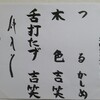 つる かしめ
木色 吉笑
舌打たず 吉笑